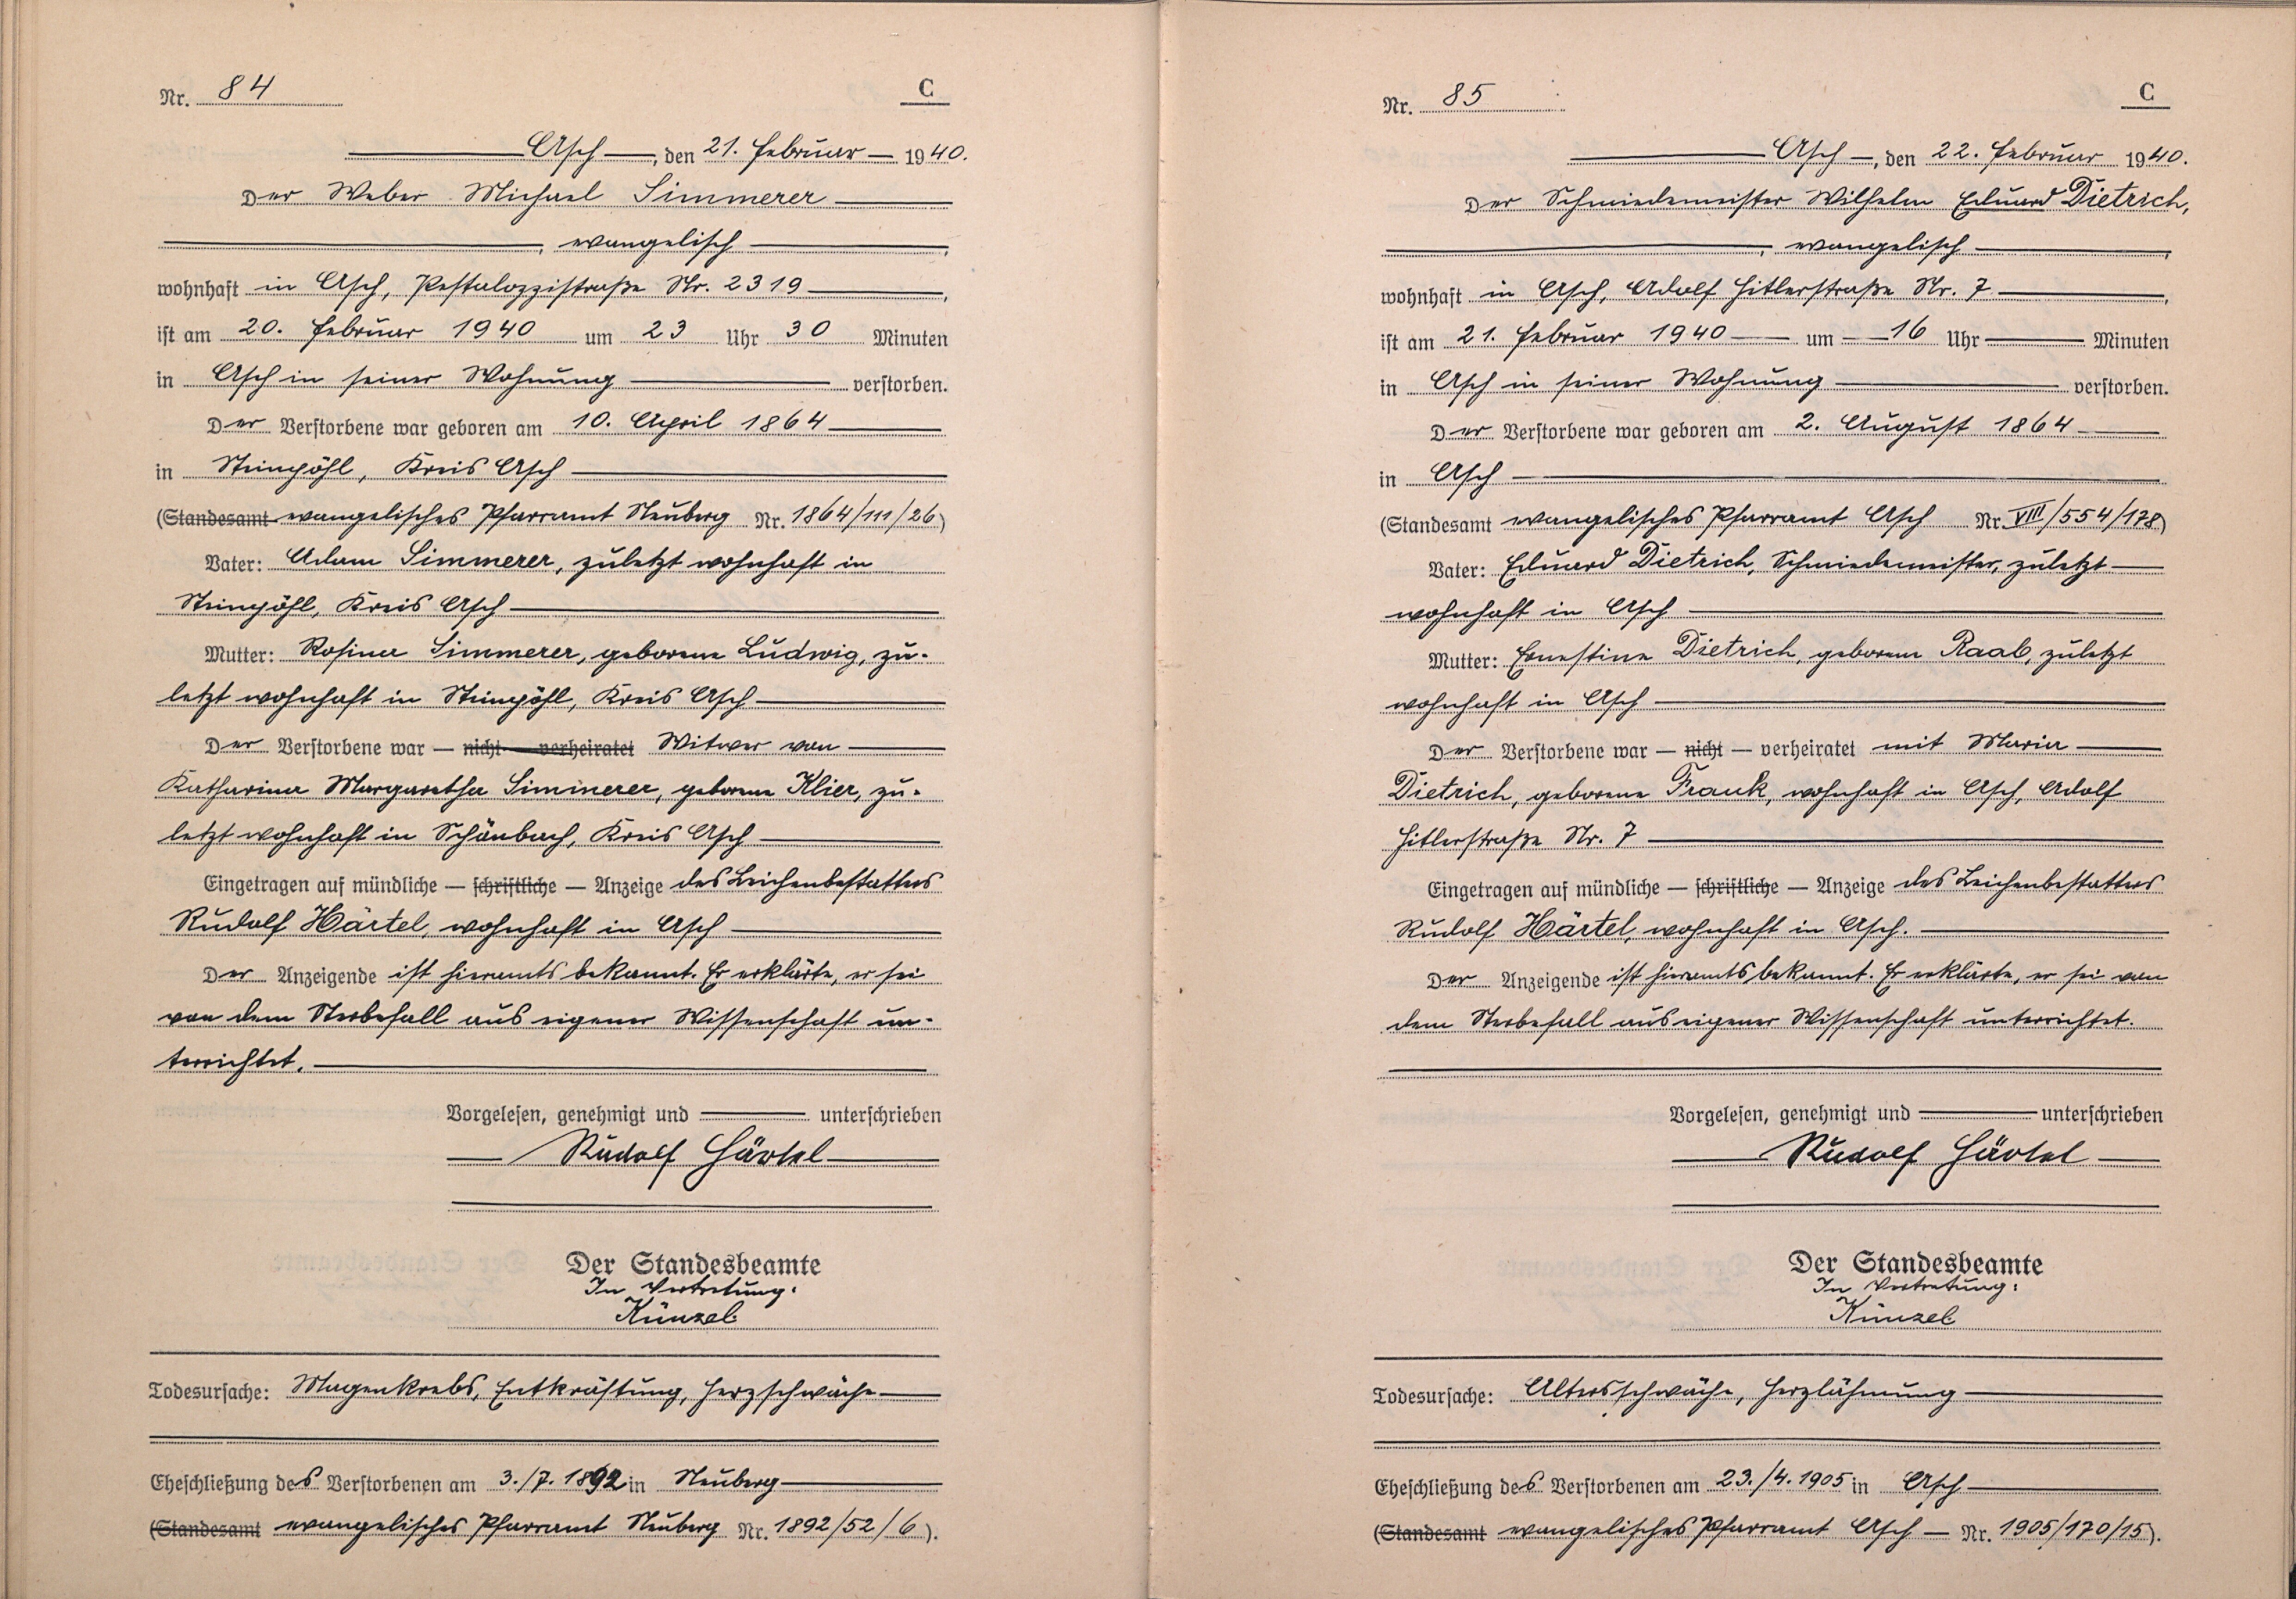 Nr. 84
C
Asch, den 21. Februar 1940.
Der Weber Michael Simmerer
, evangelisch ,
wohnhaft in Asch, Pestalozzistraße Nr. 2319 ,
ist am 20. Februar 1940 um 23 Uhr 30 Minuten
in Asch in seiner Wohnung verstorben.
Der Verstorbene war geboren am 10. April 1864
in Steinpöhl, Kreis Asch
(Standesamt evangelisches Pfarramt Neuberg Nr. 1864/111/26)
Vater: Adam Simmerer, zuletzt wohnhaft in
Steinpöhl, Kreis Asch
Mutter: Rosina Simmerer, geborene Ludwig, zu-
letzt wohnhaft in Steinpöhl, Kreis Asch
Der Verstorbene war — nicht — verheiratet Witwer von
Katharina Margaretha Simmerer, geborene Klier, zu-
letzt wohnhaft in Schönbach, Kreis Asch
Eingetragen auf mündliche — schriftliche — Anzeige des Leichenbestatters
Rudolf Härtel, wohnhaft in Asch
Der Anzeigende ist hieramts bekannt. Er erklärte, er sei
von dem Sterbefall aus eigener Wissenschaft un-
terrichtet.
Vorgelesen, genehmigt und unterschrieben
Rudolf Härtel
Der Standesbeamte
In Vertretung:
Künzel
Todesursache: Magenkrebs, Entkräftung, Herzschwäche
Eheschließung des Verstorbenen am 3./7. 1892 in Neuberg
(Standesamt evangelisches Pfarramt Neuberg Nr. 1892/52/6).
Nr. 85
C
Asch, den 22. Februar 1940.
Der Schmiedemeister Wilhelm Eduard Dietrich,
, evangelisch ,
wohnhaft in Asch, Adolf Hitlerstraße Nr. 7 ,
ist am 21. Februar 1940 um 16 Uhr Minuten
in Asch in seiner Wohnung verstorben.
Der Verstorbene war geboren am 2. August 1864
in Asch
(Standesamt evangelisches Pfarramt Asch Nr. VIII/554/178)
Vater: Eduard Dietrich, Schmiedemeister, zuletzt
wohnhaft in Asch
Mutter: Ernestine Dietrich, geborene Raab, zuletzt
wohnhaft in Asch
Der Verstorbene war — nicht — verheiratet mit Maria
Dietrich, geborene Frank, wohnhaft in Asch, Adolf
Hitlerstraße Nr. 7
Eingetragen auf mündliche — schriftliche — Anzeige des Leichenbestatters
Rudolf Härtel, wohnhaft in Asch.
Der Anzeigende ist hieramts bekannt. Er erklärte, er sei von
dem Sterbefall aus eigener Wissenschaft unterrichtet.
Vorgelesen, genehmigt und unterschrieben
Rudolf Härtel
Der Standesbeamte
In Vertretung:
Künzel
Todesursache: Altersschwäche, Herzlähmung
Eheschließung des Verstorbenen am 23./4. 1905 in Asch
(Standesamt evangelisches Pfarramt Asch — Nr. 1905/170/15).